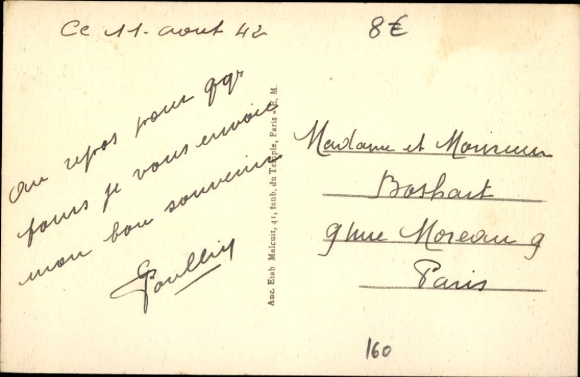 Ce 11. aout 42
8€
au repos pour qqs
jours je vous envoie
mon bon souvenir
Anc. Etab Malcuit, 41, faub. du Temple, Paris - E. M.
Madame et Monsieur
Boshart
9 rue Moreau 9
Paris
160